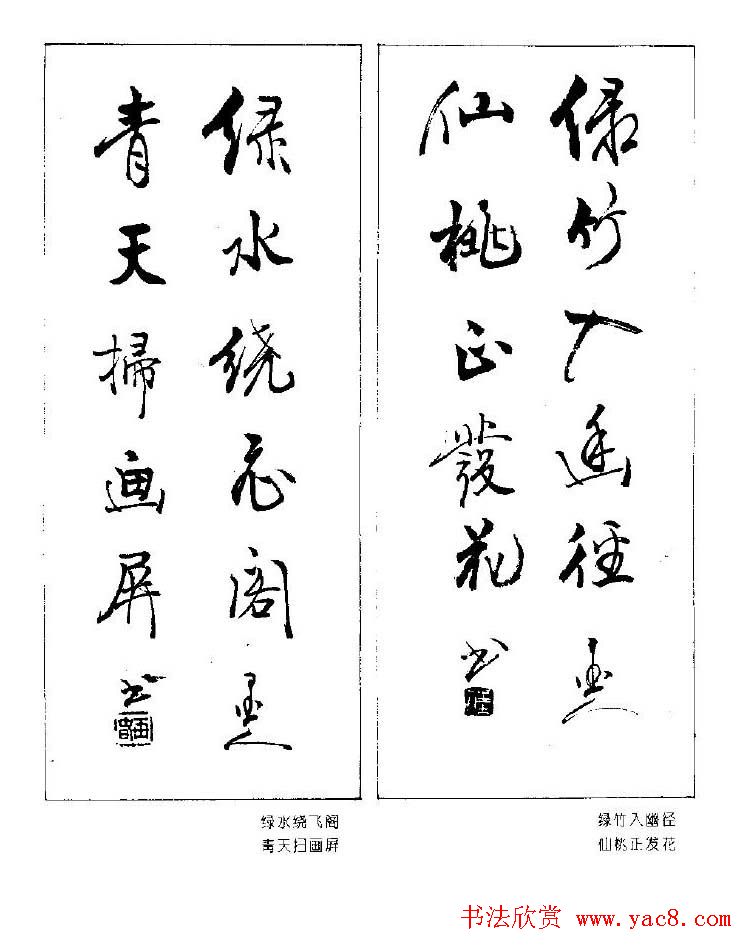 绿竹入幽径
仙桃正發花 书
绿水绕飞阁
青天掃画屏 书
绿竹入幽径
仙桃正发花
绿水绕飞阁
青天扫画屏
书法欣赏 www.yac8.com